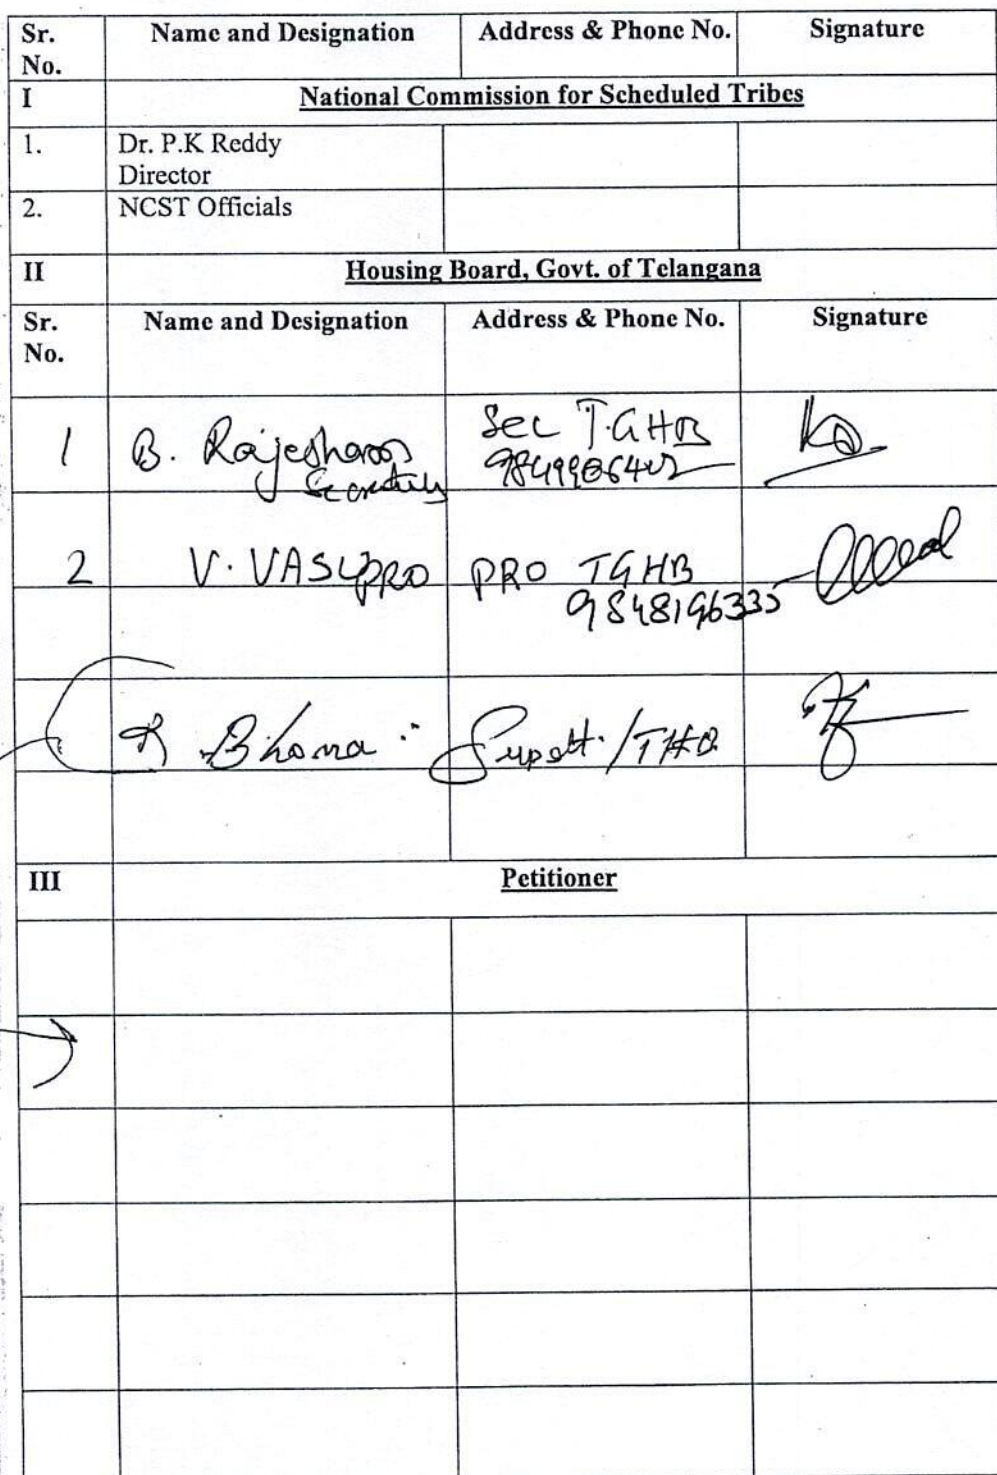 Sr. No. Name and Designation Address & Phone No. Signature
I National Commission for Scheduled Tribes
1. Dr. P.K Reddy
Director
2. NCST Officials
II Housing Board, Govt. of Telangana
Sr. No. Name and Designation Address & Phone No. Signature
1 B. Sec T.G.H.B
Secretary
2 V. VASU PRO PRO TGHB
9848196335
Supdt. / THB
III Petitioner